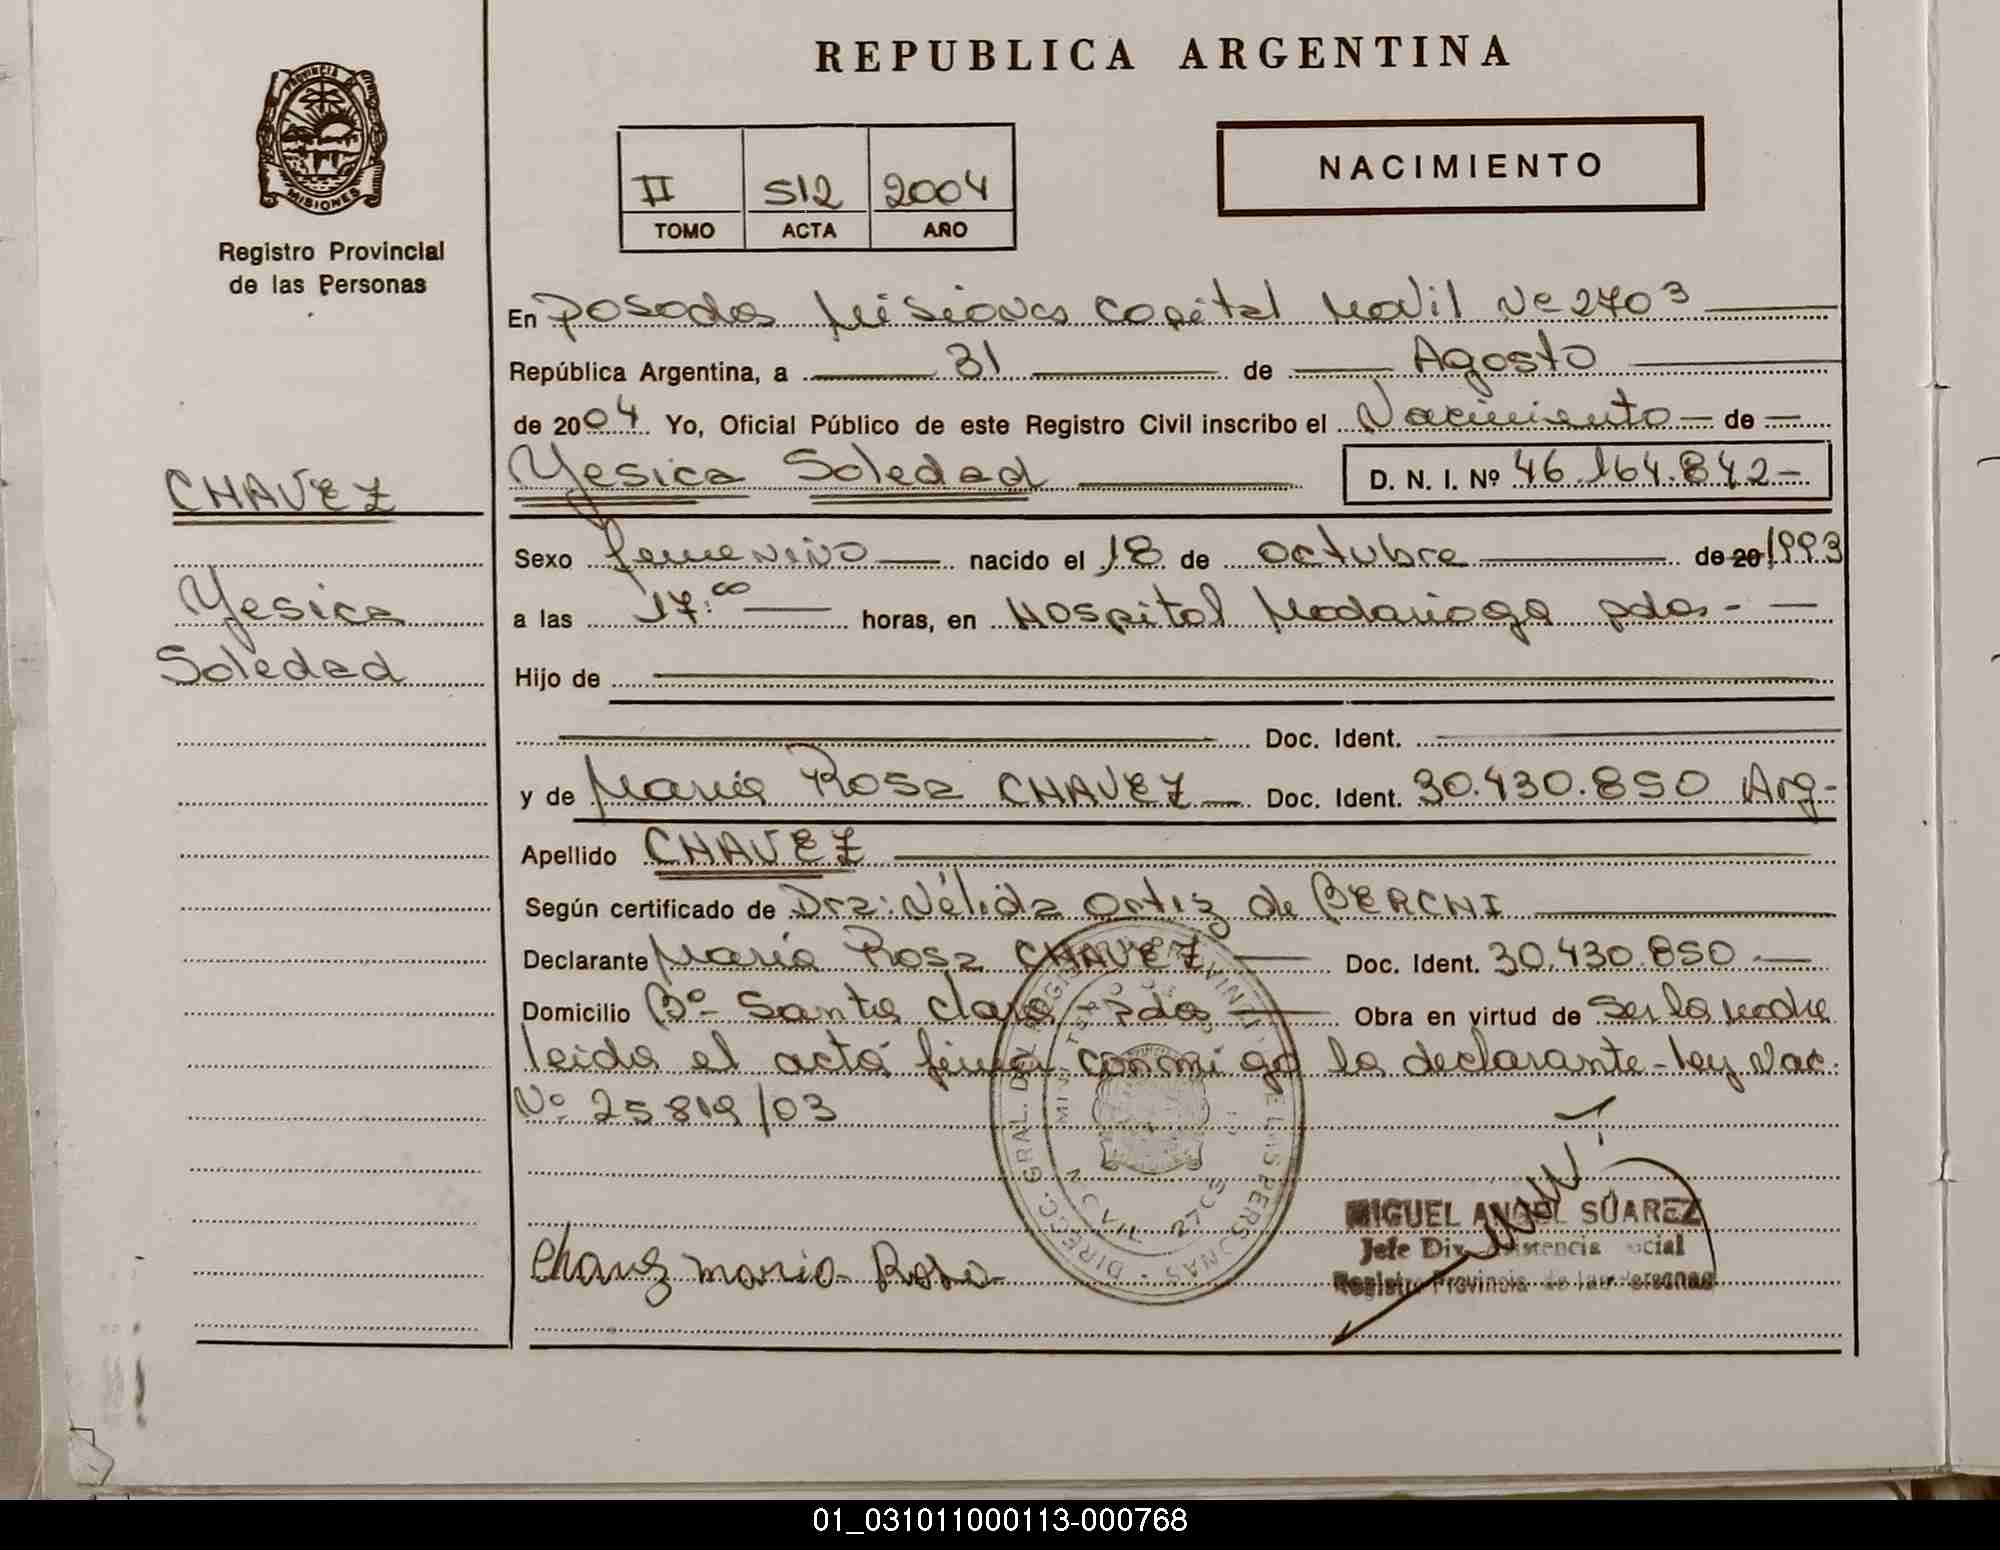 REPUBLICA ARGENTINA
PROVINCIA DE
MISIONES
Registro Provincial
de las Personas
II 512 2004
TOMO ACTA AÑO
NACIMIENTO
En Posadas Misiones Capital Movil Nº 2703
República Argentina, a 31 de Agosto
de 2004. Yo, Oficial Público de este Registro Civil inscribo el Nacimiento de
Yesica Soledad D. N. I. Nº 46.164.842-
CHAVEZ
Yesica
Soledad
Sexo femenino nacido el 18 de octubre de 20 1993
a las 17:00 horas, en Hospital Madariaga pdas -
Hijo de
Doc. Ident.
y de María Rosa CHAVEZ Doc. Ident. 30.430.850 Arg-
Apellido CHAVEZ
Según certificado de Dra: Nélida Ortiz de BERCHI
Declarante María Rosa CHAVEZ Doc. Ident. 30.430.850
Domicilio Bº Santa Clara - Pdas Obra en virtud de Ser la madre
leida el acta firma conmigo la declarante - ley Nac.
Nº 25819/03
DIRECC. GRAL. DEL DE LAS PERSONAS
2703
Chavez maria Rosa
MIGUEL ANGEL SUAREZ
Jefe Div. Asistencia Social
Registro Provincia de las Personas
01_031011000113-000768